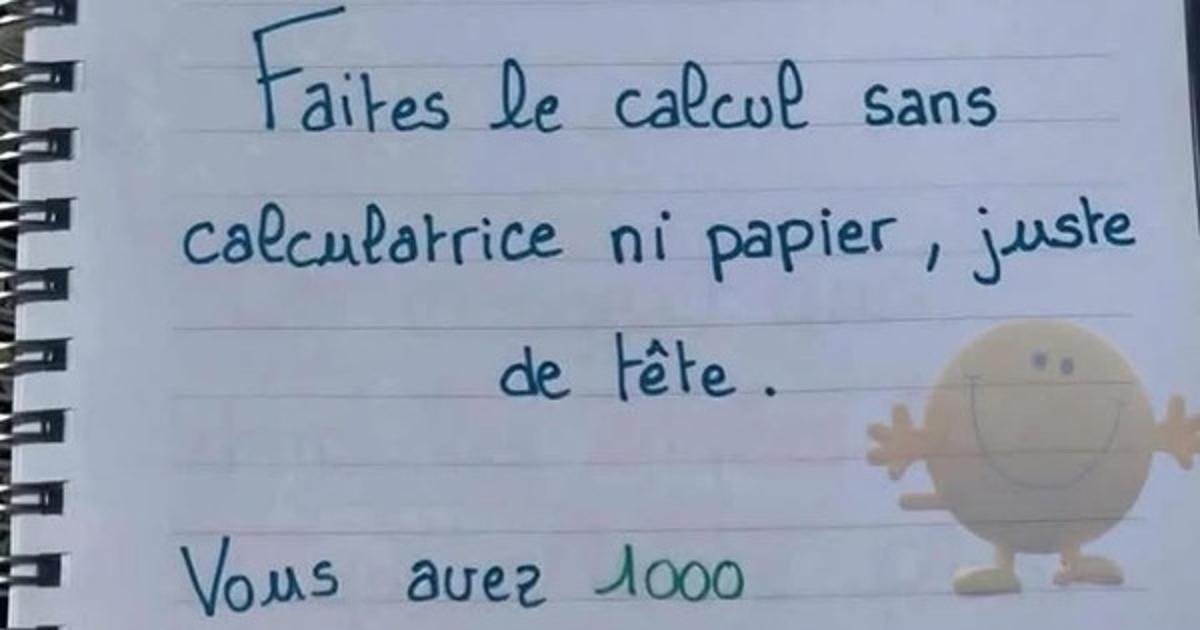 Faites le calcul sans
calculatrice ni papier, juste
de tête.
Vous avez 1000